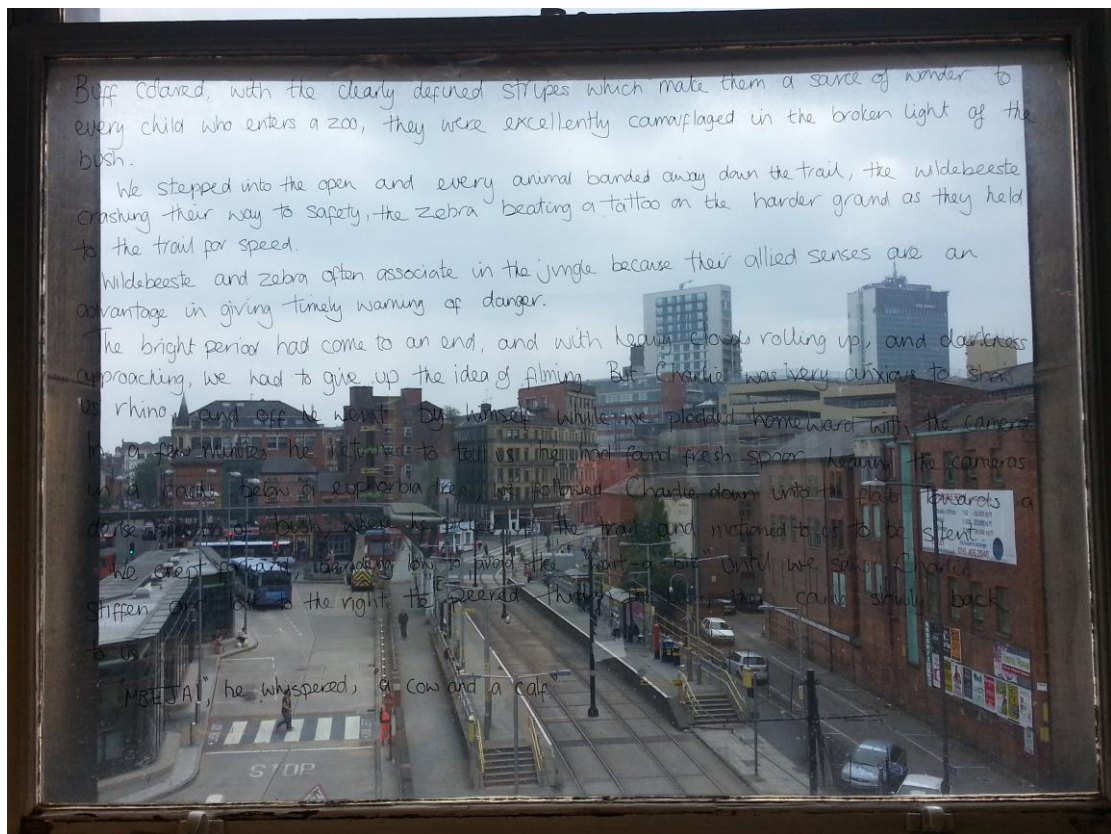 Buff colored, with the clearly defined stripes which make them a source of wonder to
every child who enters a zoo, they were excellently camouflaged in the broken light of the
bush.
We stepped into the open and every animal bounded away down the trail, the wildebeeste
crashing their way to safety, the zebra beating a tattoo on the harder ground as they held
to the trail for speed.
Wildebeeste and zebra often associate in the jungle because their allied senses are an
advantage in giving timely warning of danger.
The bright period had come to an end, and with heavy clouds rolling up, and darkness
approaching, we had to give up the idea of filming. But Charlie was very anxious to show
us rhino, and off he went by himself while we plodded homeward with the camera
In a few minutes he returned to tell us he had found fresh spoor leaving the cameras
in a below a euphorbia tree, we followed Charlie down into the flats towards a
dense of bush where he the trail and motioned to us to be silent.
We crept bending low to avoid the "wait-a-bit" Until we saw Charlie
stiffen and to the right to then came slowly back
to us
"MBEJAI," he whispered, "a cow and a calf"
STOP